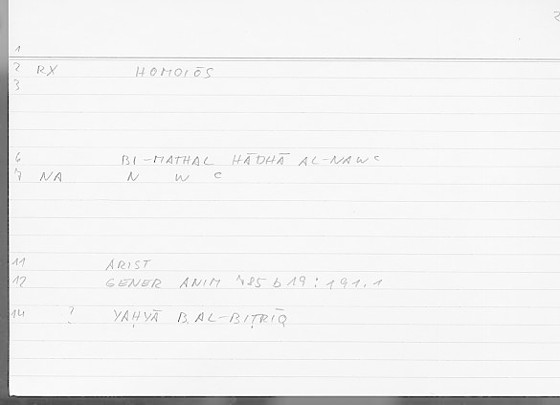 2
1
2 RX HOMOIŌS
3
6 BI-MATHAL HĀDHĀ AL-NAWʿ
7 NA N W ʿ
11 ARIST
12 GENER ANIM 785 b 19 : 191.1
14 ? YAḤYĀ B. AL-BIṬRĪQ